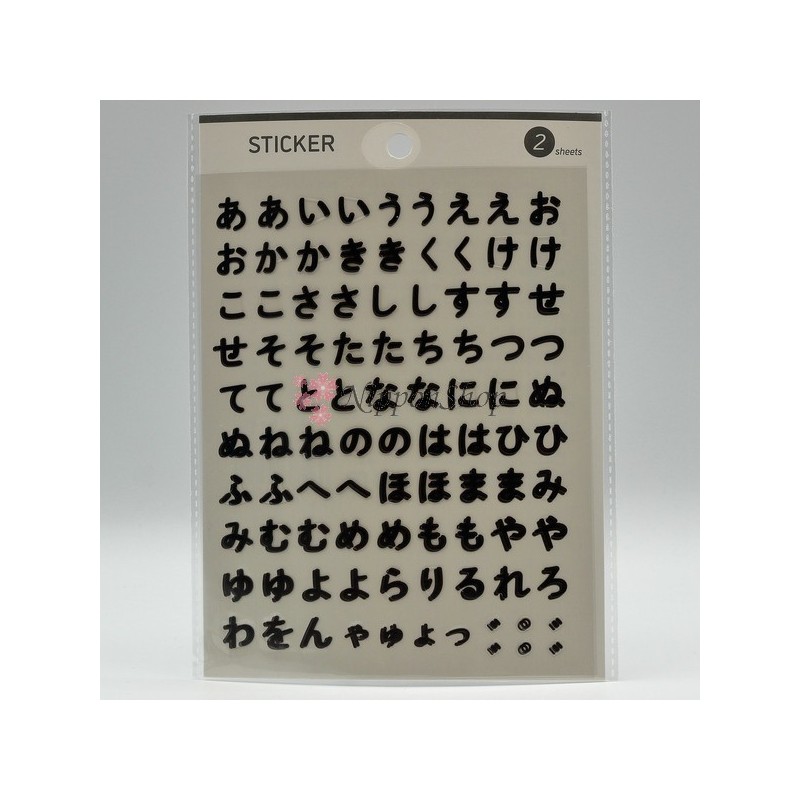 STICKER
2 sheets
ああいいううええお
おかかききくくけけ
ここささししすすせ
せそそたたちちつつ
ててととななににぬ
NipponShop
ぬねねののははひひ
ふふへへほほままみ
みむむめめももやや
ゆゆよよらりるれろ
わをんゃゅょっ